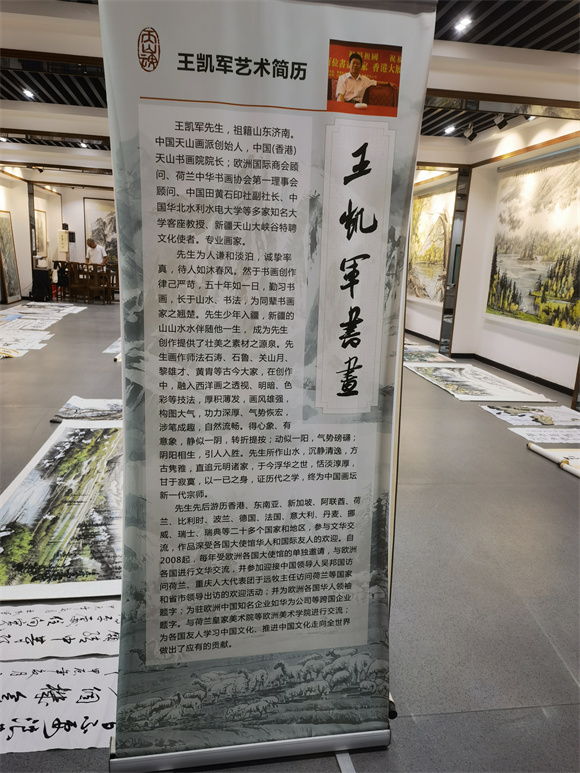 王凯军艺术简历
王凯军先生，祖籍山东济南。
中国天山画派创始人，中国(香港)
天山书画院院长；欧洲国际商会顾
问、荷兰中华书画协会第一理事会
顾问、中国田黄石印社副社长、中
国华北水利水电大学等多家知名大
学客座教授、新疆天山大峡谷特聘
文化使者。专业画家。
先生为人谦和淡泊，诚挚率
真，待人如沐春风。然于书画创作
律己严苛，五十年如一日，勤习书
画，长于山水、书法，为同辈书画
家之翘楚。先生少年入疆，新疆的
山山水水伴随他一生， 成为先生
创作提供了壮美之素材之源泉。先
生画作师法石涛、石鲁、关山月、
黎雄才、黄胄等古今大家，在创作
中，融入西洋画之透视、明暗、色
彩等技法，厚积薄发，画风雄强，
构图大气，功力深厚、气势恢宏，
涉笔成趣，自然流畅。得心象、有
意象，静似一阴，转折提按；动似一阳，气势磅礴；
阴阳相生，引人入胜。先生所作山水，沉静清逸，方
古隽雅，直追元明诸家，于今浮华之世，恬淡淳厚，
甘于寂寞，以一已之身，证历代之学，终为中国画坛
新一代宗师。
先生先后游历香港、东南亚、新加坡、阿联酋、荷
兰、比利时、波兰、德国、法国、意大利、丹麦、挪
威、瑞士、瑞典等二十多个国家和地区，参与文华交
流，作品深受各大使馆华人和国际友人的欢迎。自
2008起，每年受欧洲各国大使馆的单独邀请，与欧洲
各国进行文华交流，并参加迎接中国领导人吴邦国访
问荷兰、重庆人大代表团于远牧主任访问荷兰等国家
和省市领导出访的欢迎活动；并为欧洲各国华人领袖
题字；为驻欧洲中国知名企业如华为公司等跨国企业
题字。与荷兰皇家美术院等欧洲美术学院进行交流；
为各国友人学习中国文化、推进中国文化走向全世界
做出了应有的贡献。
王凯军书画